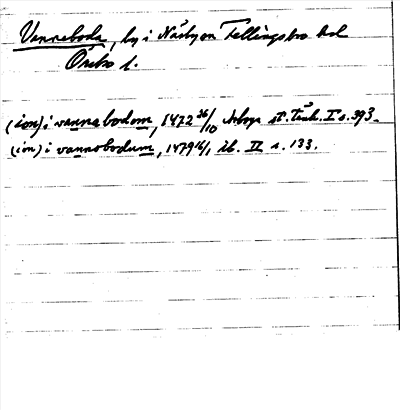 Vannaboda, by i Näsby sn Fellingsbro hd
Örebro l.
(ion) i vannabodom, 1472 26/10 Arboga st. Tänk. I s. 393.
(ion) i vannobodum, 1479 16/1 ib. II s. 133.